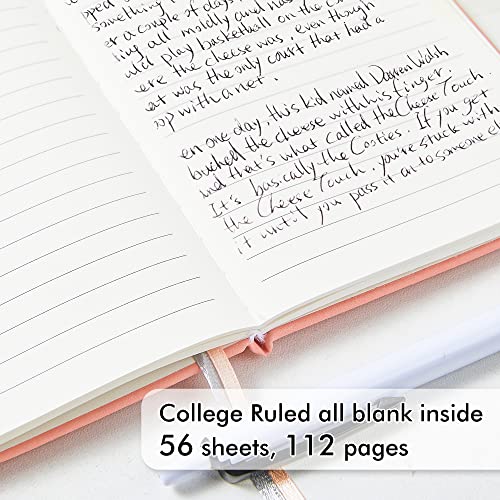 something
er a couple of days
ing all moldly and nas
uld play basketball on the co
ere the cheese was, even though
at was the only court that had a
oop with a net.
en one day, this kid named Darren Walsh
touched the cheese with his finger
nd that's what called the Cheese Touch.
It's basically the Cooties. If you get
the Cheese Touch, you're stuck with
it until you pass it on to someone e
College Ruled all blank inside
56 sheets, 112 pages